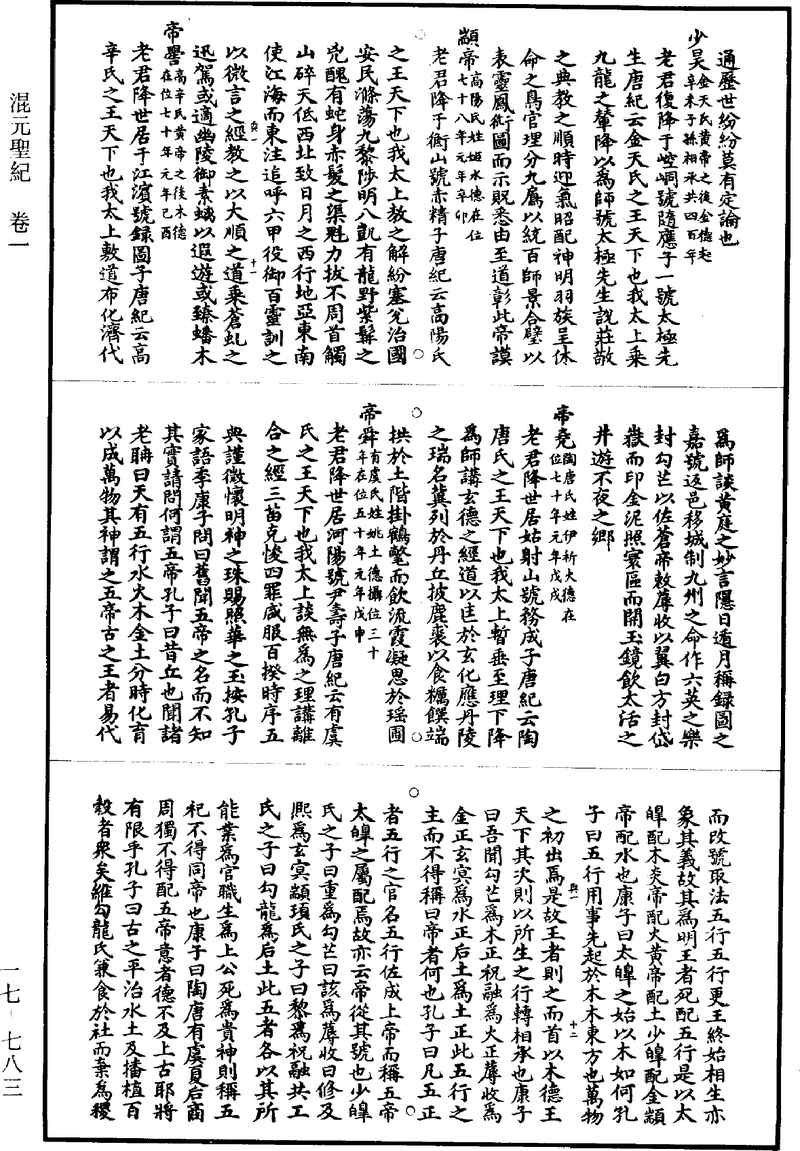 混元聖紀　卷一
一七-七八三
通歷世紛紛莫有定論也
少昊金天氏黃帝之後金德起辛未子孫相承共四百年
老君復降于崆峒號隨應子一號太極先
生唐紀云金天氏之王天下也我太上乗
九龍之輦降以為師號太極先生說莊敬
之典教之順時迎氣昭配神明羽族呈休
命之鳥官理分九扈以統百師景合璧以
表靈鳳銜圖而示貺悉由至道彰此帝謨
顓帝高陽氏姓姬水德在位七十八年元年辛卯
老君降于衡山號赤精子唐紀云高陽氏
之王天下也我太上教之解紛塞兌治國
安民滌蕩九黎陟明八凱有龍野紫髯之
兇醜有蛇身赤髮之渠魁力拔不周首觸
山碎天低西北致日月之西行地亞東南
使江海而東注追呼六甲役御百靈訓之
以微言之經教之以大順之道乗蒼虬之
迅駕或適幽陵御素螭以遐遊或臻蟠木
帝嚳高辛氏黃帝之後木德在位七十年元年己酉
老君降世居于江濱號録圖子唐紀云高
辛氏之王天下也我太上敷道布化濟代
與一　十一
為師談黃庭之妙言隱日遁月稱録圖之
嘉號返邑移城制九州之命作六英之樂
封勾芒以佐蒼帝敕蓐收以翼白方封岱
嶽而印金泥照寰區而開玉鏡飲太活之
井遊不夜之郷
帝堯陶唐氏姓伊祈火德在位七十年元年戊戌
老君降世居姑射山號務成子唐紀云陶
唐氏之王天下也我太上暫垂至理下降
為師講玄德之經道以匡於玄化應丹陵
之瑞名蓂列於丹丘披鹿裘以食糲饌端
拱於土階掛鶴氅而飲流霞凝思於瑶圃
帝舜有虞氏姓姚土德攝位三十年在位五十年元年戊申
老君降世居河陽號尹壽子唐紀云有虞
氏之王天下也我太上談無為之理講離
合之經三苗克悛四罪咸服百揆時序五
典謹徽懷明神之珠賜照華之玉按孔子
家語季康子問曰舊聞五帝之名而不知
其實請問何謂五帝孔子曰昔丘也聞諸
老聃曰天有五行水火木金土分時化育
以成萬物其神謂之五帝古之王者易代
而改號取法五行五行更王終始相生亦
象其義故其為明王者死配五行是以太
皥配木炎帝配火黃帝配土少皥配金顓
帝配水也康子曰太皥之始以木如何孔
子曰五行用事先起於木木東方也萬物
與一　十二
之初出焉是故王者則之而首以木德王
天下其次則以所生之行轉相承也康子
曰吾聞勾芒為木正祝融為火正蓐收為
金正玄冥為水正后土為土正此五行之
主而不得稱曰帝者何也孔子曰凡五正
者五行之官名五行佐成上帝而稱五帝
太皥之屬配焉故亦云帝從其號也少皥
氏之子曰重為勾芒曰該為蓐收曰修及
熙為玄冥顓頊氏之子曰黎為祝融共工
氏之子曰勾龍為后土此五者各以其所
能業為官職生為上公死為貴神則稱五
祀不得同帝也康子曰陶唐有虞夏后商
周獨不得配五帝意者德不及上古耶將
有限乎孔子曰古之平治水土及播植百
穀者衆矣唯勾龍氏兼食於社而棄為稷